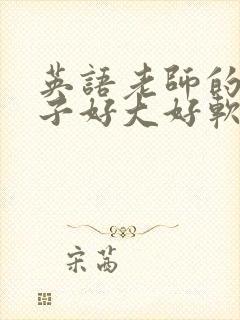 英語老師的
子好大好軟
宋茜